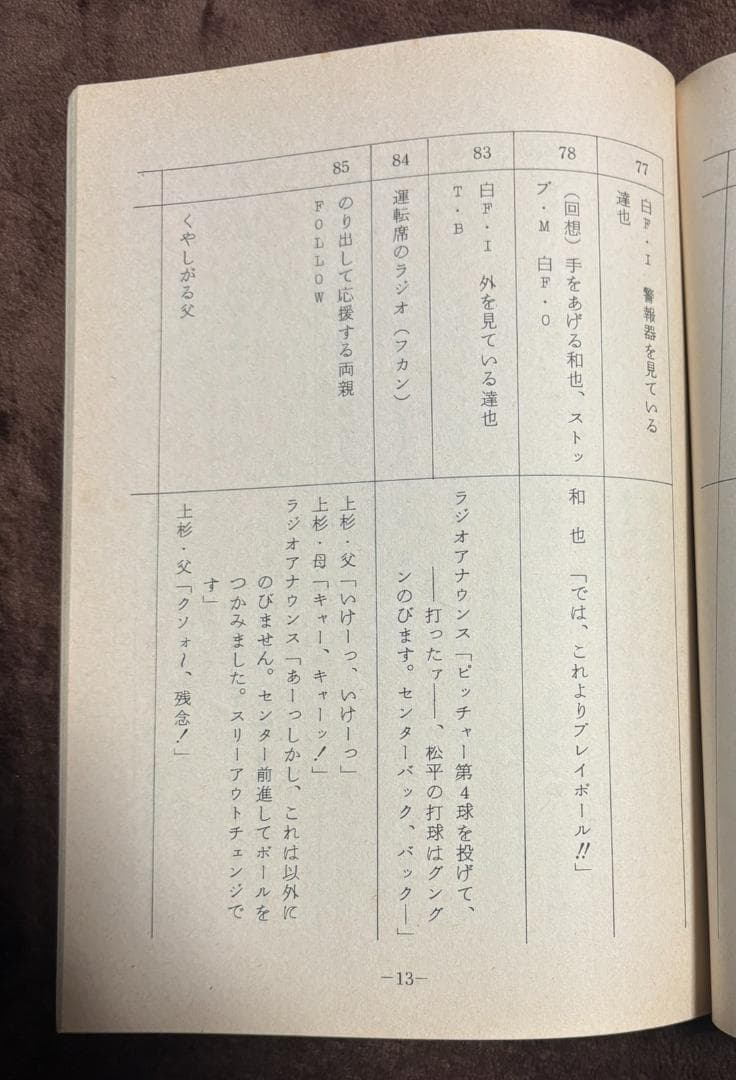 77
白F・I　警報器を見ている
達也
78
（回想）手をあげる和也、ストッ
プ・M　白F・O
和　也　「では、これよりプレイボール!!」
83
白F・I　外を見ている達也
T・B
ラジオアナウンス「ピッチャー第4球を投げて、
――打ったァ――、松平の打球はグング
ンのびます。センターバック、バック―」
84
運転席のラジオ（フカン）
85
のり出して応援する両親
FOLLOW
上杉・父「いけーっ、いけーっ」
上杉・母「キャー、キャーッ!」
ラジオアナウンス「あーっしかし、これは以外に
のびません。センター前進してボールを
つかみました。スリーアウトチェンジで
す」
くやしがる父
上杉・父「クソォ〜、残念!」
—13—